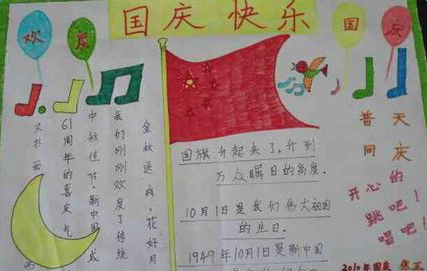 国庆快乐
欢度
国庆
金秋送爽,花好月
我们刚刚欢度了传统
中秋佳节,新中国成
61周年的喜庆气
又扑面
国旗升起来了,升到
万众瞩目的高度.
10月1日是我们伟大祖国
的生日.
1949年10月1日是新中国
普天
同庆
开心的
跳吧!
唱吧!
2010年国庆